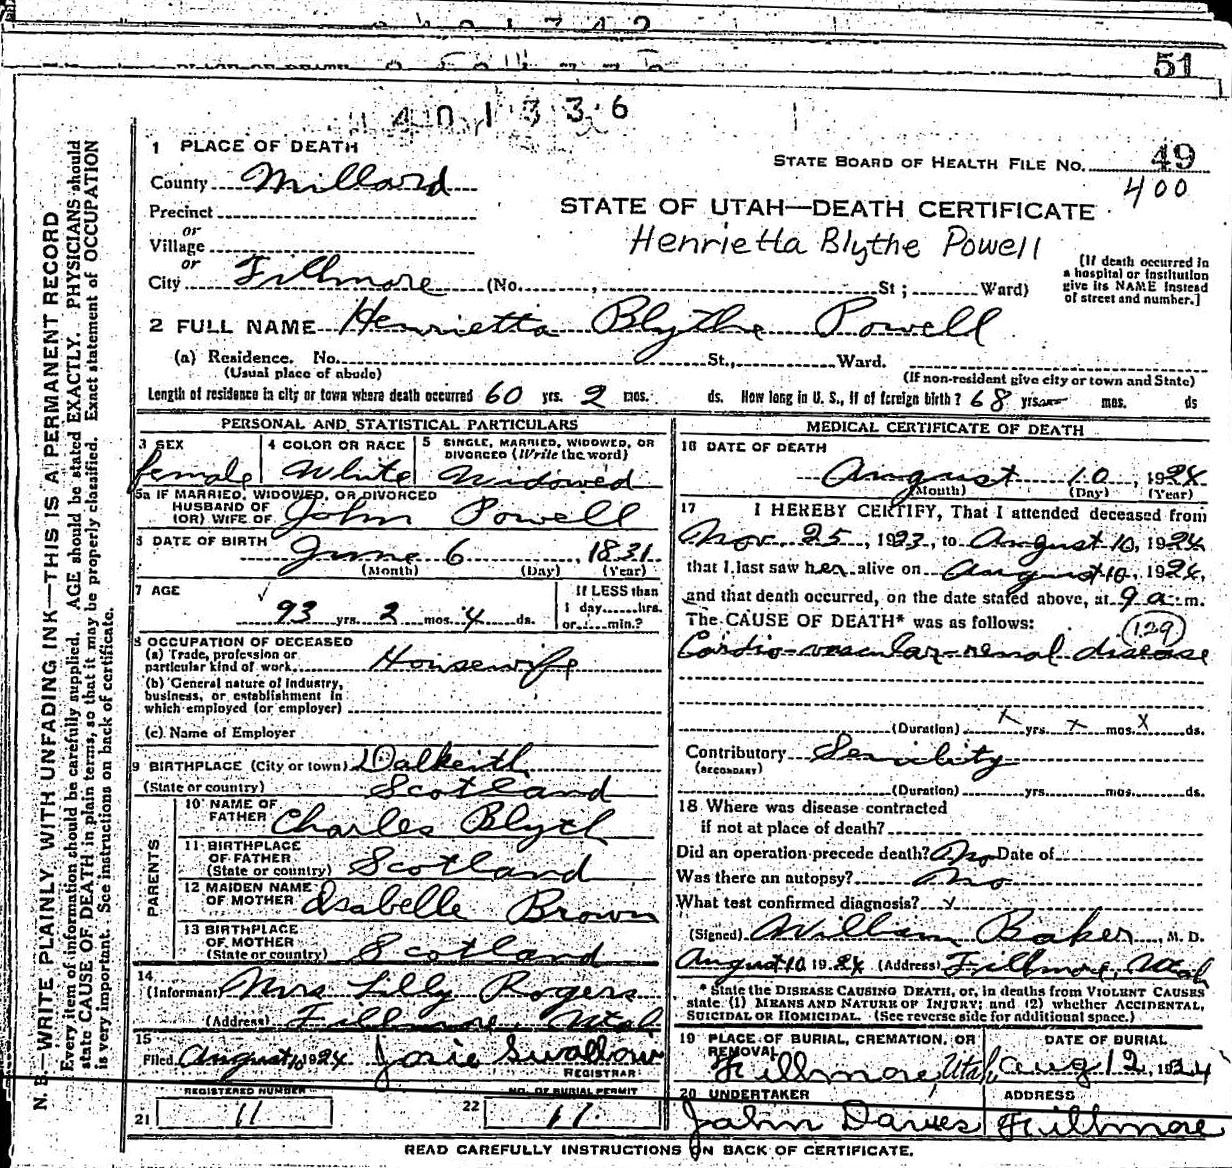 51
401336
1 PLACE OF DEATH
STATE BOARD OF HEALTH FILE NO. 49
400
County Millard
Precinct
or
Village
or
City Fillmore (No. , St ; Ward)
STATE OF UTAH—DEATH CERTIFICATE
Henrietta Blythe Powell
(If death occurred in
a hospital or institution
give its NAME instead
of street and number.]
2 FULL NAME Henrietta Blythe Powell
(a) Residence. No. St., Ward.
(Usual place of abode)
(If non-resident give city or town and State)
Length of residence in city or town where death occurred 60 yrs. 2 mos. ds. How long in U. S., if of foreign birth? 68 yrs. mos. ds
PERSONAL AND STATISTICAL PARTICULARS
3 SEX
female
4 COLOR OR RACE
White
5 SINGLE, MARRIED, WIDOWED, OR
DIVORCED (Write the word)
Widowed
5a IF MARRIED, WIDOWED, OR DIVORCED
HUSBAND OF
(OR) WIFE OF John Powell
6 DATE OF BIRTH
June 6 , 1831
(Month) (Day) (Year)
7 AGE
93 yrs. 2 mos. 4 ds.
If LESS than
1 day hrs.
or min.?
8 OCCUPATION OF DECEASED
(a) Trade, profession or
particular kind of work Housewife
(b) General nature of Industry,
business, or establishment in
which employed (or employer)
(c) Name of Employer
9 BIRTHPLACE (City or town) Dalkeith
(State or country) Scotland
PARENTS
10 NAME OF
FATHER Charles Blyth
11 BIRTHPLACE
OF FATHER
(State or country) Scotland
12 MAIDEN NAME
OF MOTHER Isabelle Brown
13 BIRTHPLACE
OF MOTHER
(State or country) Scotland
14
(Informant) Mrs Lilly Rogers
(Address) Fillmore, Utah
15
Filed August 10 1924 Josie Swallow
REGISTRAR
REGISTERED NUMBER
21 11
NO. OF BURIAL PERMIT
22 17.
MEDICAL CERTIFICATE OF DEATH
16 DATE OF DEATH
August 10 , 1924
(Month) (Day) (Year)
17 I HEREBY CERTIFY, That I attended deceased from
Nov. 25 , 1923, to August 10, 1924
that I last saw her alive on August 10, 1924,
and that death occurred, on the date stated above, at 9 a.m.
The CAUSE OF DEATH* was as follows:
129
Cardio-vascular-renal disease
(Duration) x yrs. x mos. x ds.
Contributory Senility
(SECONDARY)
(Duration) yrs. mos. ds.
18 Where was disease contracted
if not at place of death?
Did an operation precede death? No Date of
Was there an autopsy? No
What test confirmed diagnosis?
(Signed) William Baker, M. D.
August 10 1924 (Address) Fillmore, Utah
* State the DISEASE CAUSING DEATH, or, in deaths from VIOLENT CAUSES
state (1) MEANS AND NATURE OF INJURY; and (2) whether ACCIDENTAL,
SUICIDAL OR HOMICIDAL. (See reverse side for additional space.)
19 PLACE OF BURIAL, CREMATION, OR
REMOVAL
Fillmore, Utah
DATE OF BURIAL
Aug 12, 1924
20 UNDERTAKER
John Davies
ADDRESS
Fillmore
READ CAREFULLY INSTRUCTIONS ON BACK OF CERTIFICATE.
N. B.—WRITE PLAINLY, WITH UNFADING INK—THIS IS A PERMANENT RECORD
Every item of information should be carefully supplied. AGE should be stated EXACTLY. PHYSICIANS should
state CAUSE OF DEATH in plain terms, so that it may be properly classified. Exact statement of OCCUPATION
is very important. See instructions on back of certificate.